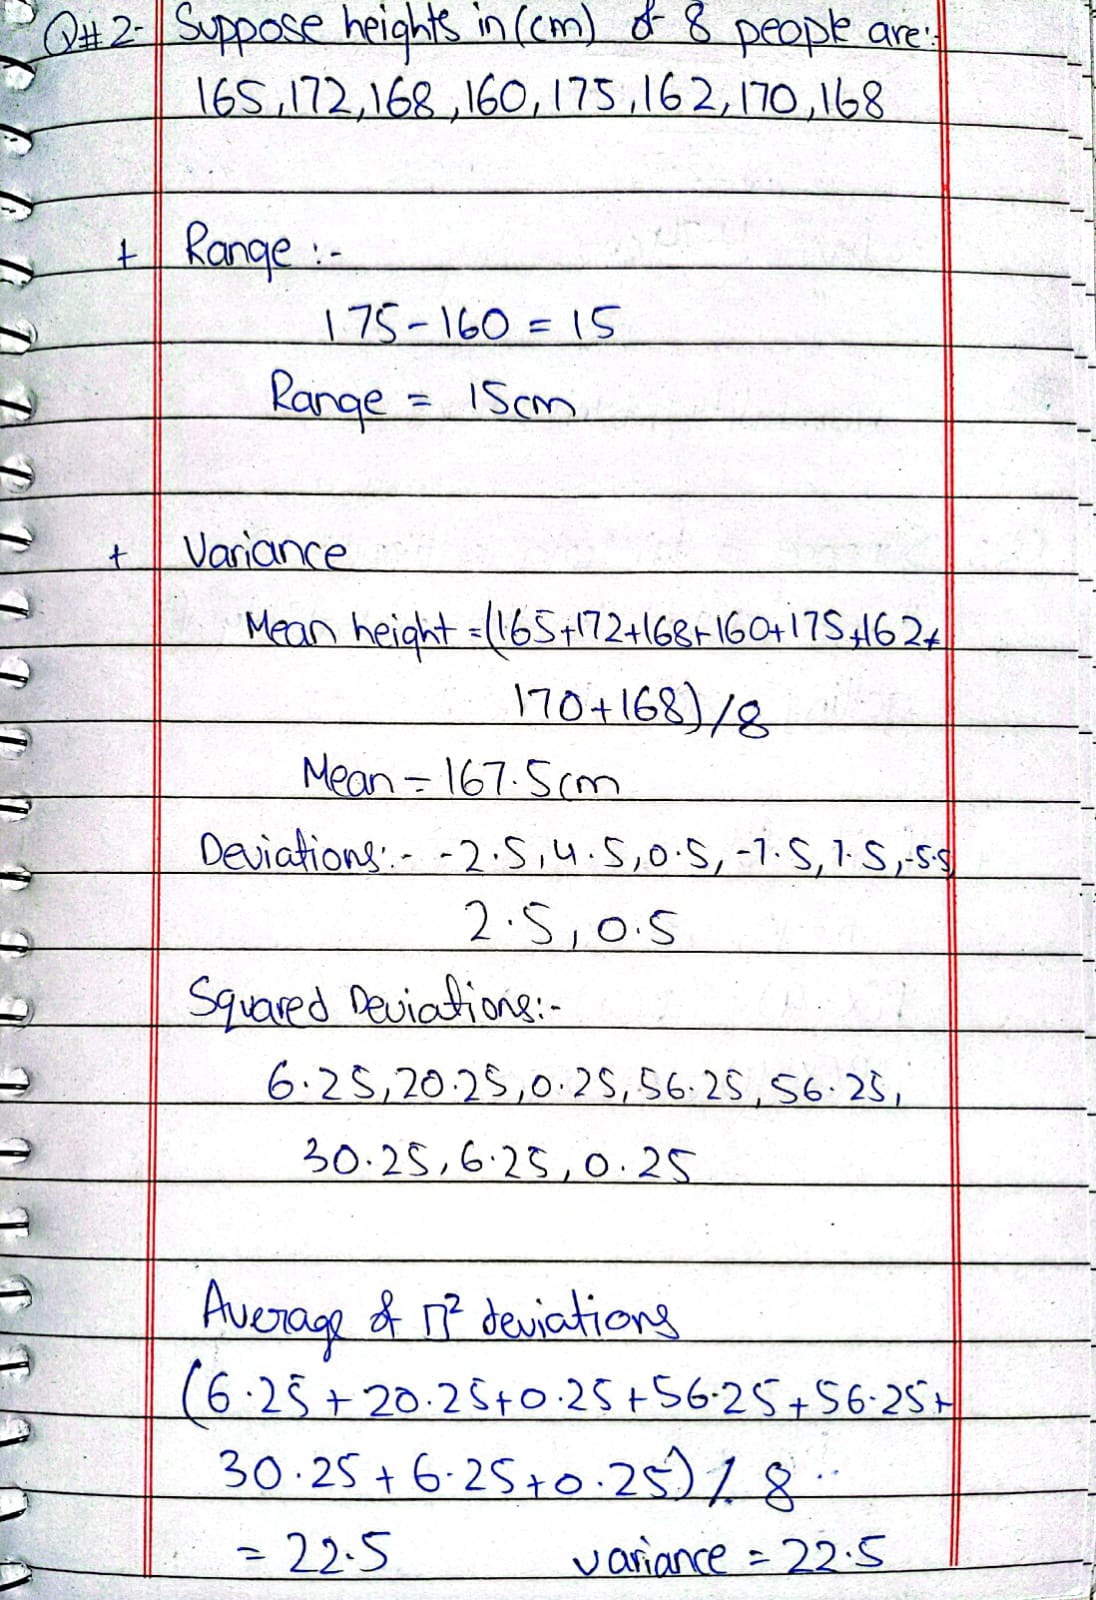 Q#2- Suppose heights in (cm) of 8 people are:-
165,172,168,160,175,162,170,168
+ Range :-
175-160 = 15
Range = 15cm
+ Variance
Mean height =(165+172+168+160+175+162+
170+168)/8
Mean = 167.5cm
Deviations:- -2.5,4.5,0.5,-7.5,7.5,-5.5,
2.5,0.5
Squared Deviations:-
6.25,20.25,0.25,56.25,56.25,
30.25,6.25,0.25
Average of Π² deviations
(6.25+20.25+0.25+56.25+56.25+
30.25+6.25+0.25)/8
= 22.5 variance = 22.5